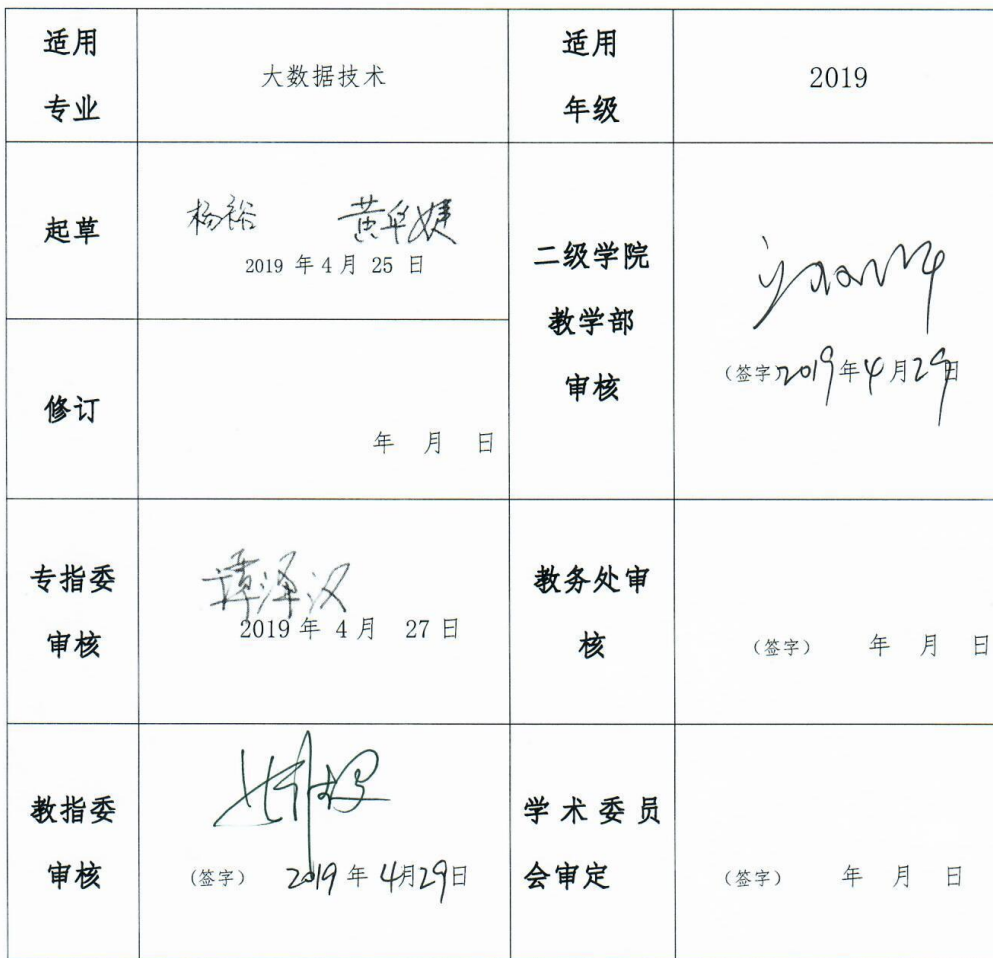 适用
专业
大数据技术
适用
年级
2019
起草
杨裕 黄华婕
2019 年 4 月 25 日
二级学院
教学部
审核
(签字) 2019 年 4 月 29 日
修订
年 月 日
专指委
审核
谭泽汉
2019 年 4 月 27 日
教务处审
核
(签字) 年 月 日
教指委
审核
(签字) 2019 年 4 月 29 日
学 术 委 员
会审定
(签字) 年 月 日